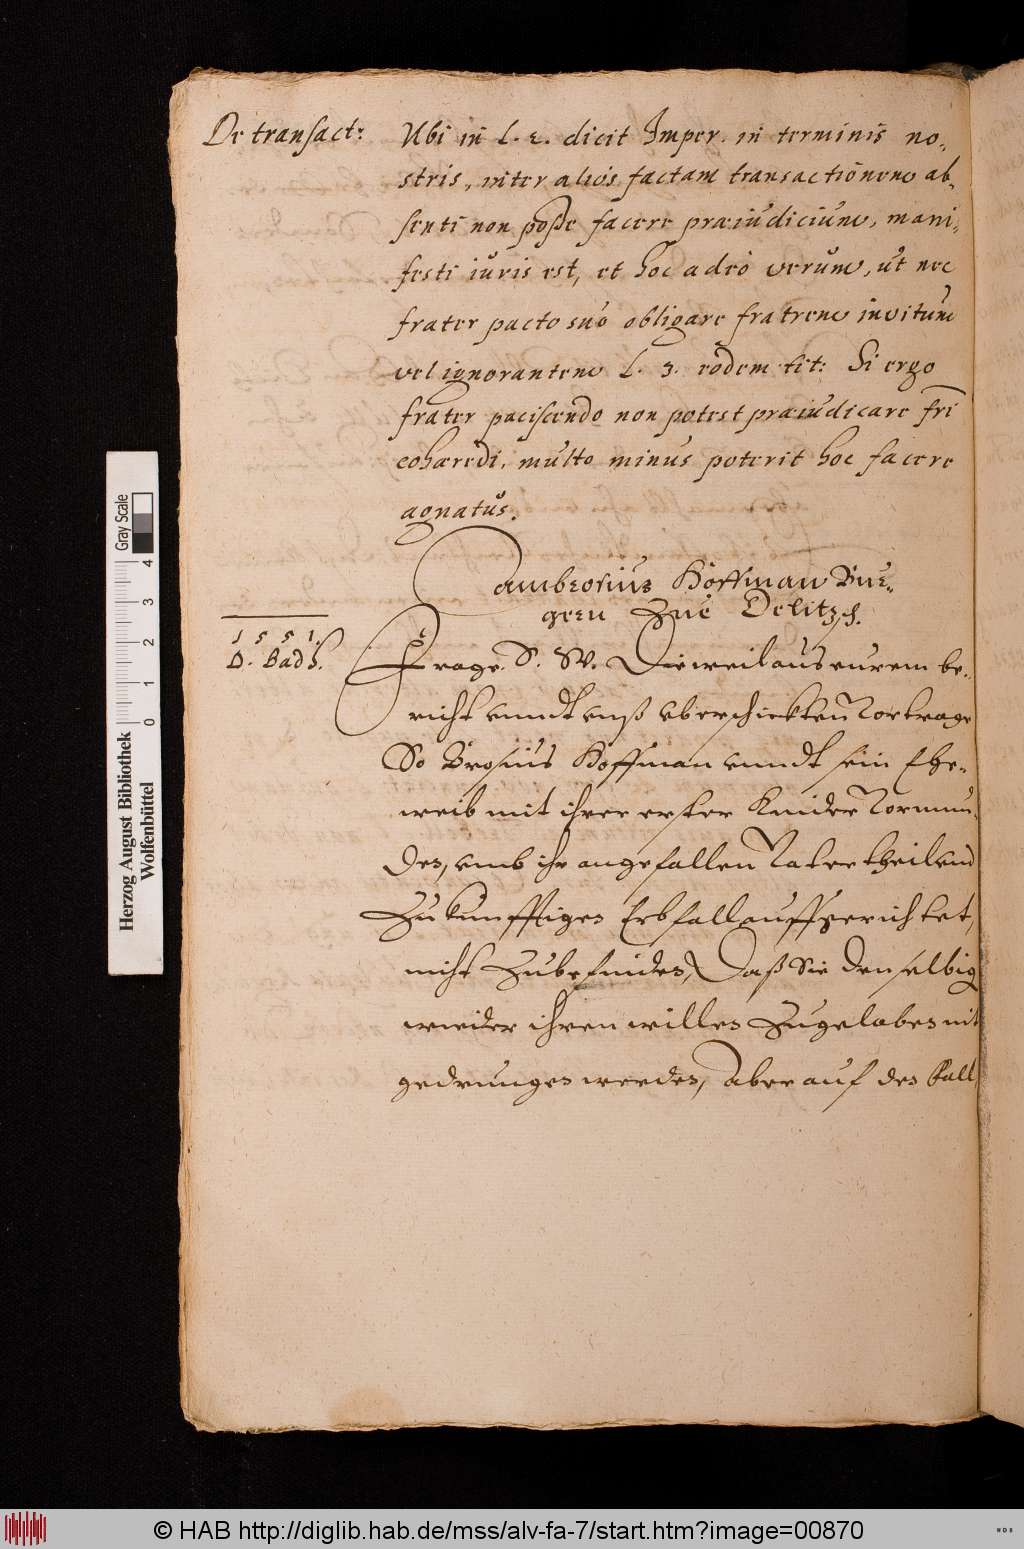 De transact:
Ubi in l. 2. dicit Imper. in terminis no-
stris, inter alios factam transactionem ab-
senti non posse facere præiudicium, mani-
festi iuris est, et hoc adeò verum, ut nec
frater pacto suo obligare fratrem invitum
vel ignorantem l. 3. eodem tit: Si ergo
frater paciscendo non potest præiudicare fri
cohæredi, multo minus poterit hoc facere
agnatus.
Ambrosius Hoffman Bur-
gern Zue Delitzsch.
1551.
D. Badh.
Frage. S. W. Dieweil aus eurem be-
richt unndt uberschickten Vortrage
So Brosius Hoffman unndt sein Ehe-
weib mit ihrer erster Kinder Vormun-
den, umb ihr angefallen Vater theil und
Zukunfftigen Erbfall auffgerichtet,
nicht Zubefinden, Daß Sie denselbig
wieder ihren willen Zugeloben nit
gedrungen werden, Aber auf den Fall
Gray Scale
0 1 2 3 4
Herzog August Bibliothek
Wolfenbüttel
© HAB http://diglib.hab.de/mss/alv-fa-7/start.htm?image=00870